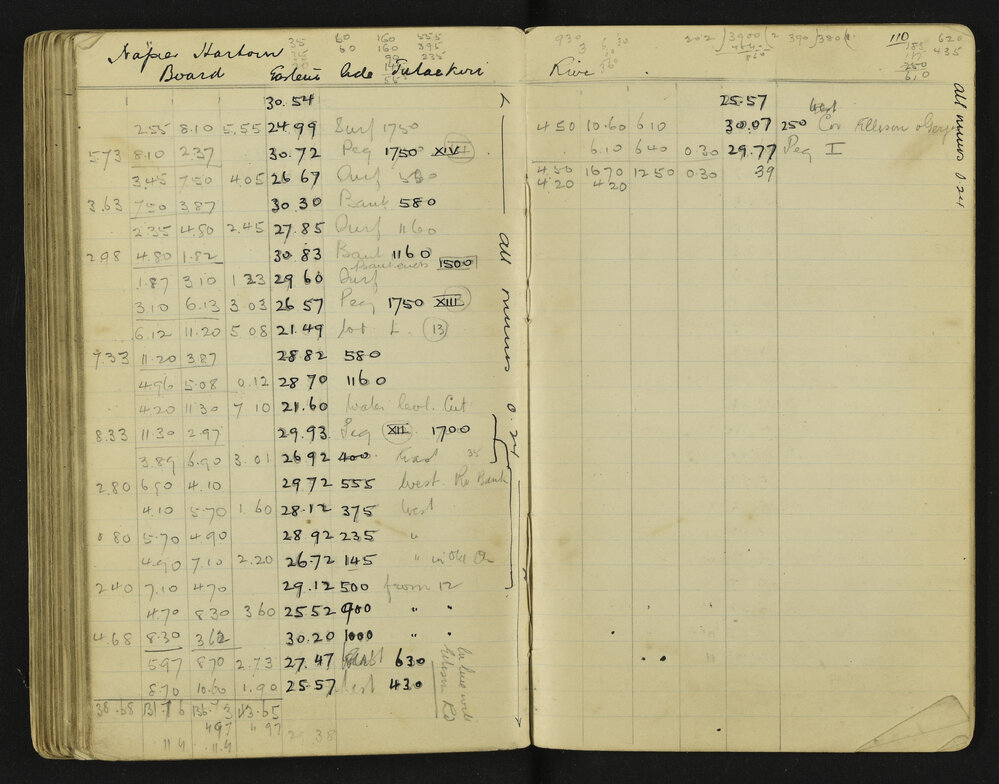 35 60 160 555
60 160 395
95 235
145
Napier Harbour
Board Eastern Side Tutaekuri
30.54
255 8.10 5.55 24.99 Surf 1750
573 8.10 2.37 30.72 Peg 1750 XIV
3.45 7.50 4.05 26 67 Surf 580
3.63 7.50 3.87 30.30 Bank 580
2.35 4.80 2.45 27.85 Surf 1160
298 4.80 1.82 30.83 Bank 1160
1500
1.87 3.10 1 23 29 60 Surf
3.10 6.13 3.03 26 57 Peg 1750 XIII
6.12 11.20 5.08 21.49 Lot L. 13
7.33 11.20 3.87 28.82 580
4.96 5.08 0.12 28 70 1160
4.20 11.30 7 10 21.60 Water level. Cut
8.33 11.30 2.97 29.93 Peg XII 1700
3.89 6.90 3.01 26 92 400 East 35
2.80 6.90 4.10 29 72 555 West. Rv Bank
4.10 5.70 1.60 28.12 375 West
0 80 5.70 4.90 28 92 235 "
4.90 7.10 2.20 26.72 145 " in Old
240 7.10 470 29.12 500 from 12
4.70 8.30 360 25 52 900 " "
4.68 8.30 362 30.20 1000 " "
597 870 2.73 27.47 630
8.70 10.60 1.90 25.57 West 430
In line with
Ellison RD
38.68 131.7 6 136.7 3 43.65
497 6 97
11.4 11.4
29 38
all minus 0.24
930 3 30 202 ) 3900 ( 2 390 ) 380 ( 110 620
185 435
250
610
River
25.57 West
450 10.60 610 30.07 250 Cor Ellison
6.10 640 0.30 29.77 Peg I
4.50 1670 12 50 0.30 39
4.20 4 20
all minus 0.24